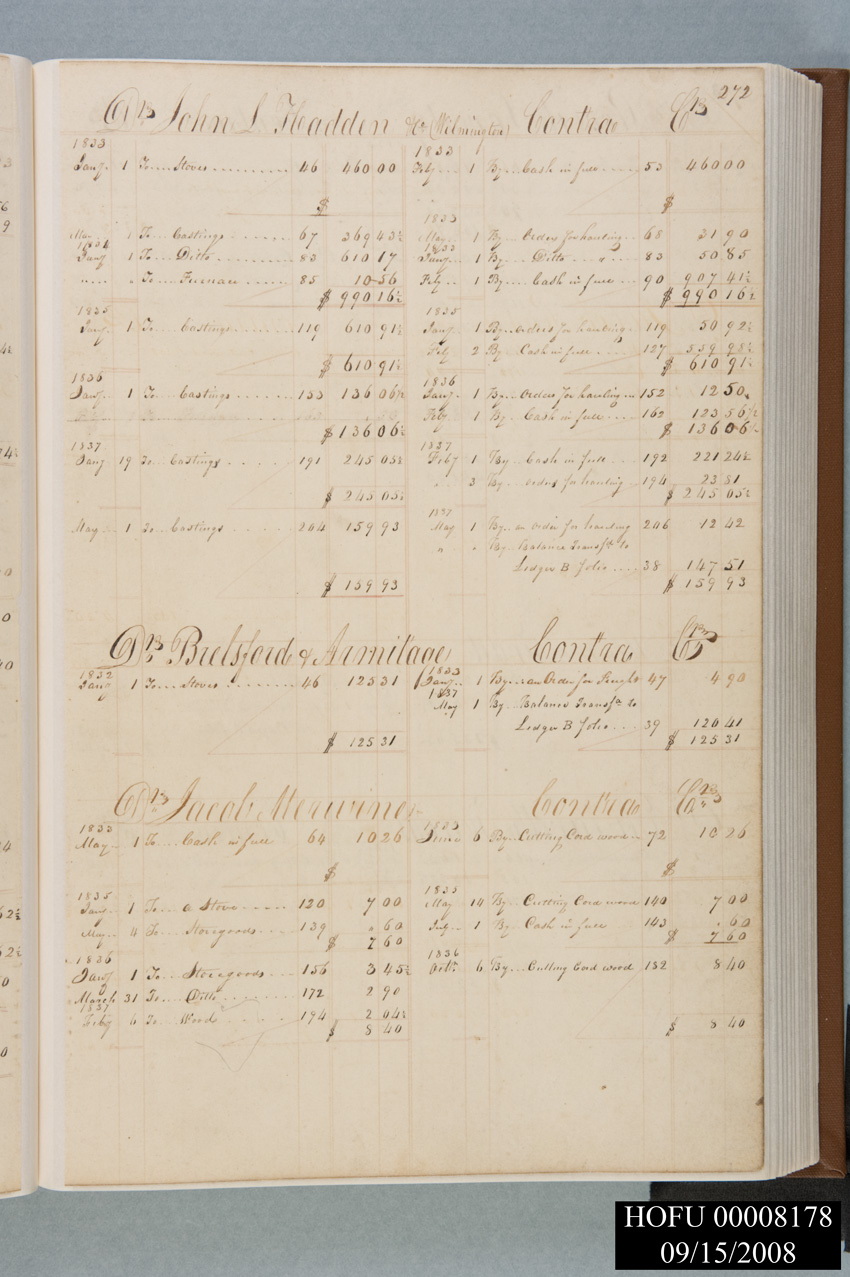 272
Dr John L Hadden &Co (Wilmington) Contra Cr
1833 1833
Jany 1 To Stoves 46 460 00 Feby 1 By Cash in full 53 460 00
$ $
1833
May 1 To Castings 67 369 43½ May 1 By Orders for hauling 68 31 90
1834 1833
Jany 1 To Ditto 83 610 17 Jany 1 By Ditto " 83 50 85
" " To Furnace 85 10 56 Feby 1 By Cash in full 90 907 41½
$ 990 16½ $ 990 16½
1835 1835
Jany 1 To Castings 119 610 91½ Jany 1 By orders for hauling 119 50 92½
Feby 2 By Cash in full 127 559 98½
$ 610 91½ $ 610 91½
1836 1836
Jany 1 To Castings 153 136 06½ Jany 1 By Orders for hauling 152 12 50
Feby 1 By Cash in full 162 123 56½
$ 136 06½ $ 136 06½
1837 1837
Jany 19 To Castings 191 245 05½ Feby 1 By Cash in full 192 221 24½
" 3 By orders for hauling 194 23 81
$ 245 05½ $ 245 05½
1837
May 1 To Castings 204 159 93 May 1 By an order for hauling 206 12 42
" " By Balance Transfd to
Ledger B folio 38 147 51
$ 159 93 $ 159 93
Dr Brelsford & Armitage Contra Cr
1832 1833
Jany 1 To Stoves 46 125 31 Jany 1 By an Order for 47 4 90
1837
May 1 By Balance Transfd to
Ledger B folio 39 120 41
$ 125 31 $ 125 31
Dr Jacob Merwine Contra Cr
1833 1833
May 1 To Cash in full 64 10 26 June 6 By Cutting Cord wood 72 10 26
$ $
1835 1835
Jany 1 To a Stove 120 7 00 May 14 By Cutting Cord wood 140 7 00
May 4 To Storegoods 139 " 60 July 1 By Cash in full 143 " 60
$ 7 60 $ 7 60
1836 1836
Jany 1 To Storegoods 156 3 45½ Octr 6 By Cutting Cord wood 182 8 40
March 31 To Ditto 172 2 90
1837
Feby 6 To Wood 194 2 04½
$ 8 40 $ 8 40
HOFU 00008178
09/15/2008